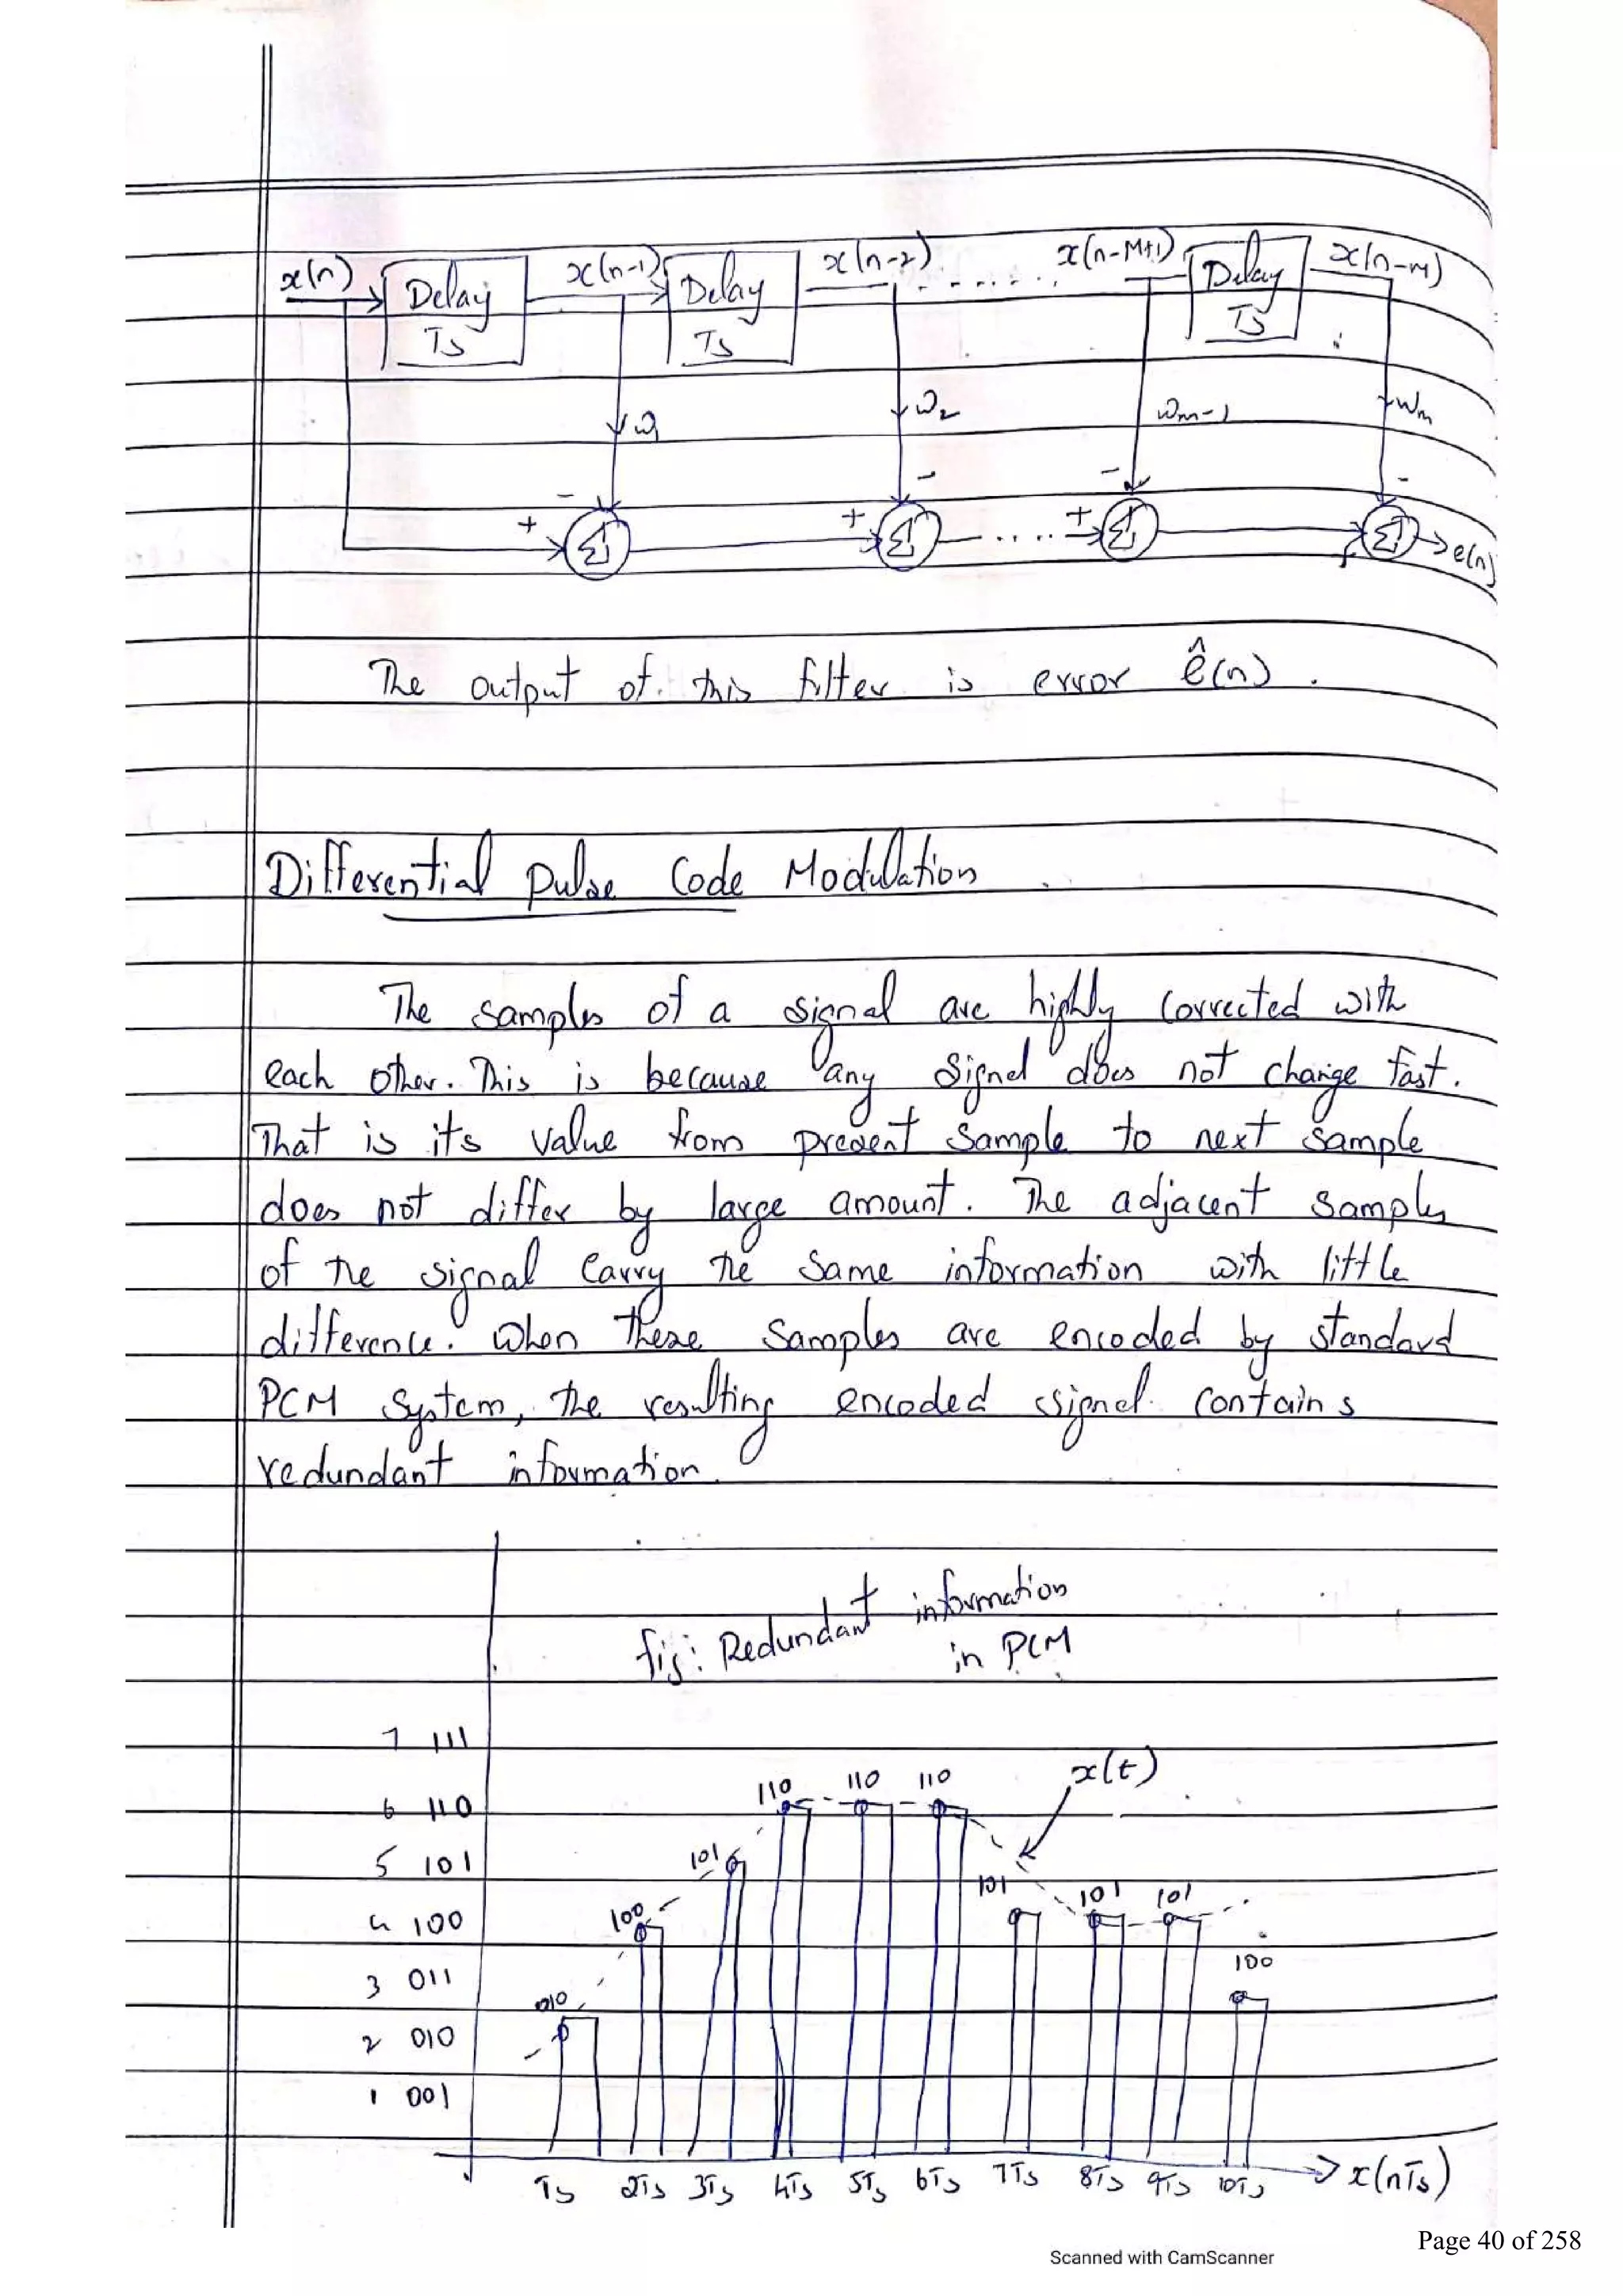 x(n) Delay Ts x(n-1) Delay Ts x(n-2) ........ x(n-M+1) Delay Ts x(n-M)
ω1 ω2 ωm-1 ωm
- - - -
+ Σ + Σ .... + Σ Σ e(n)
The output of this filter is error ê(n).
Differential Pulse Code Modulation
The samples of a signal are highly corrected with
each other. This is because any signal does not change fast.
That is its value from present sample to next sample
does not differ by large amount. The adjacent samples
of the signal carry the same information with little
difference. When these samples are encoded by standard
PCM system, the resulting encoded signal contains
redundant information.
fig: Redundant information
in PCM
7 111
6 110
5 101
4 100
3 011
2 010
1 001
010 100 101 110 110 110 101 101 101 100
x(t)
Ts 2Ts 3Ts 4Ts 5Ts 6Ts 7Ts 8Ts 9Ts 10Ts x(nTs)
Scanned with CamScanner
Page 40 of 258